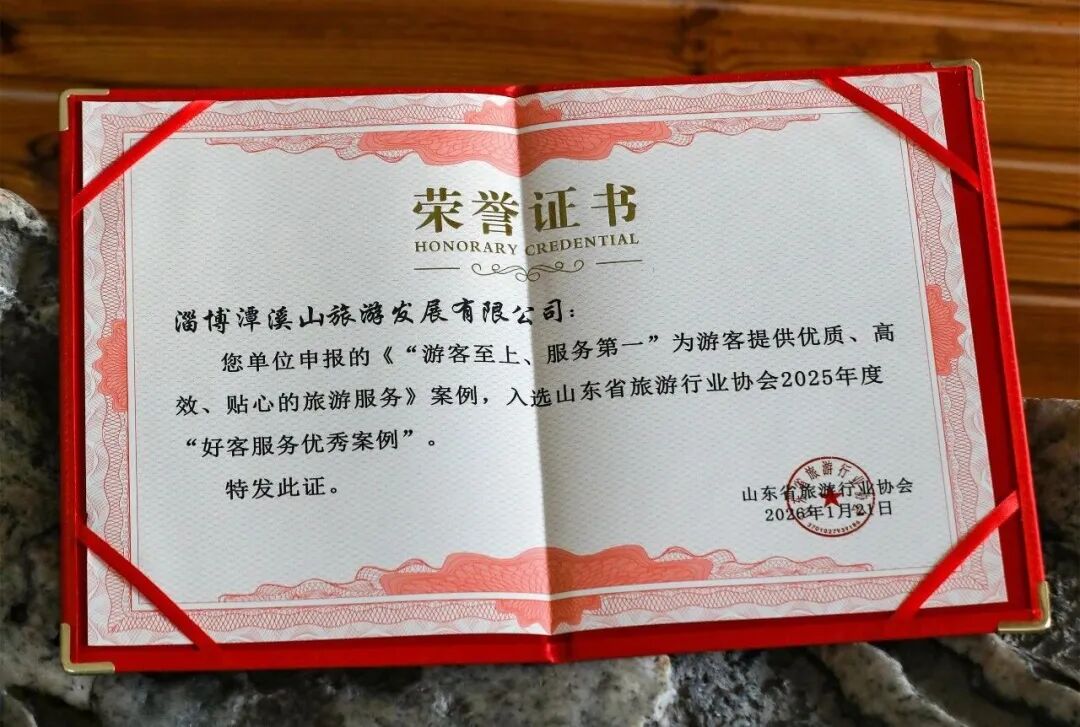 荣誉证书
HONORARY CREDENTIAL
淄博潭溪山旅游发展有限公司：
您单位申报的《“游客至上、服务第一”为游客提供优质、高
效、贴心的旅游服务》案例，入选山东省旅游行业协会2025年度
“好客服务优秀案例”。
特发此证。
山东省旅游行业协会
2026年1月21日